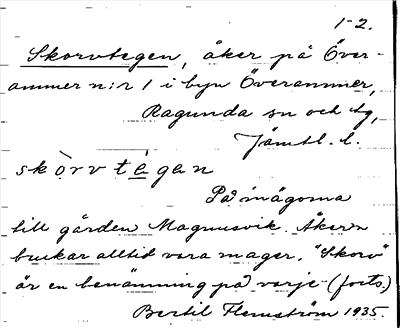 1-2.
Skorvtegen, åker på Över-
ammer n:r 1 i byn Överammer,
Ragunda sn och tg,
Jämtl. l.
skòrvtègan
På inägorna
till gården Magnusvik. Åkern
brukar alltid vara mager. "Skorv"
är en benämning på varje (forts.)
Bertil Flemström 1935.